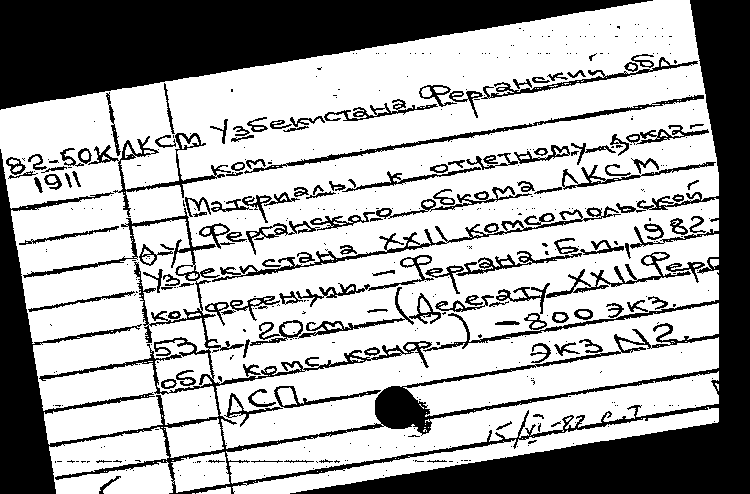 82-50К ЛКСМ Узбекистана. Ферганский обл.
1911 ком.
Материалы к отчетному докла-
ду Ферганского обкома ЛКСМ
Узбекистана XXII комсомольской
конференции. – Фергана: Б.и., 1982.-
53 с.; 20см. – (Делегату XXII Ферг
обл. комс. конф.). – 800 экз.
ДСП. ЭКЗ N2.
15/VI-82 с.т.